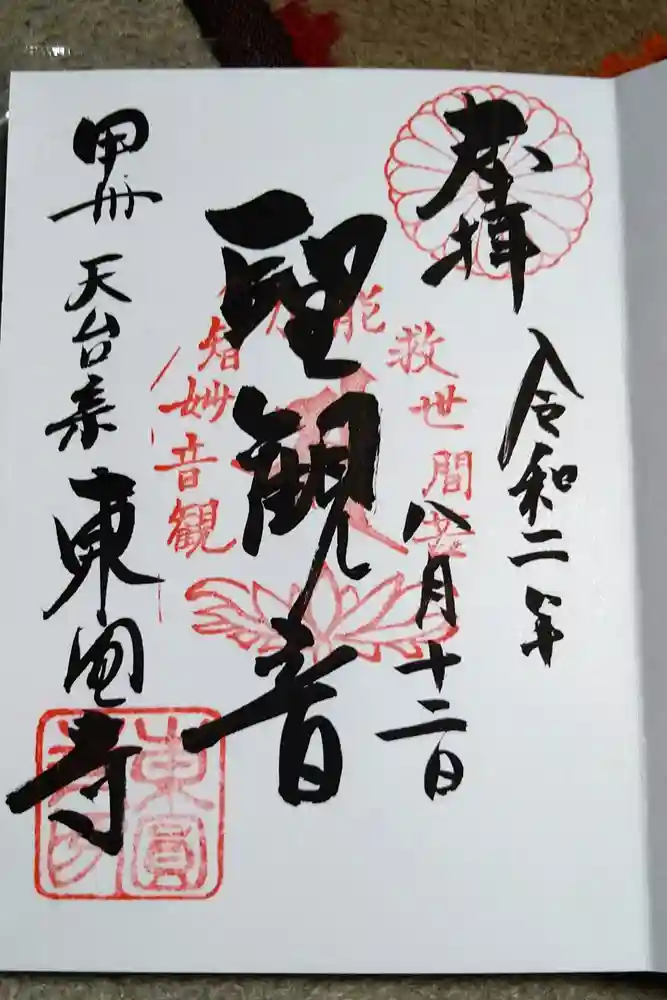 奉拝
令和二年
八月十二日
聖観音
観音妙智力能救世間苦
甲州 天台宗 東圓寺
東圓寺印